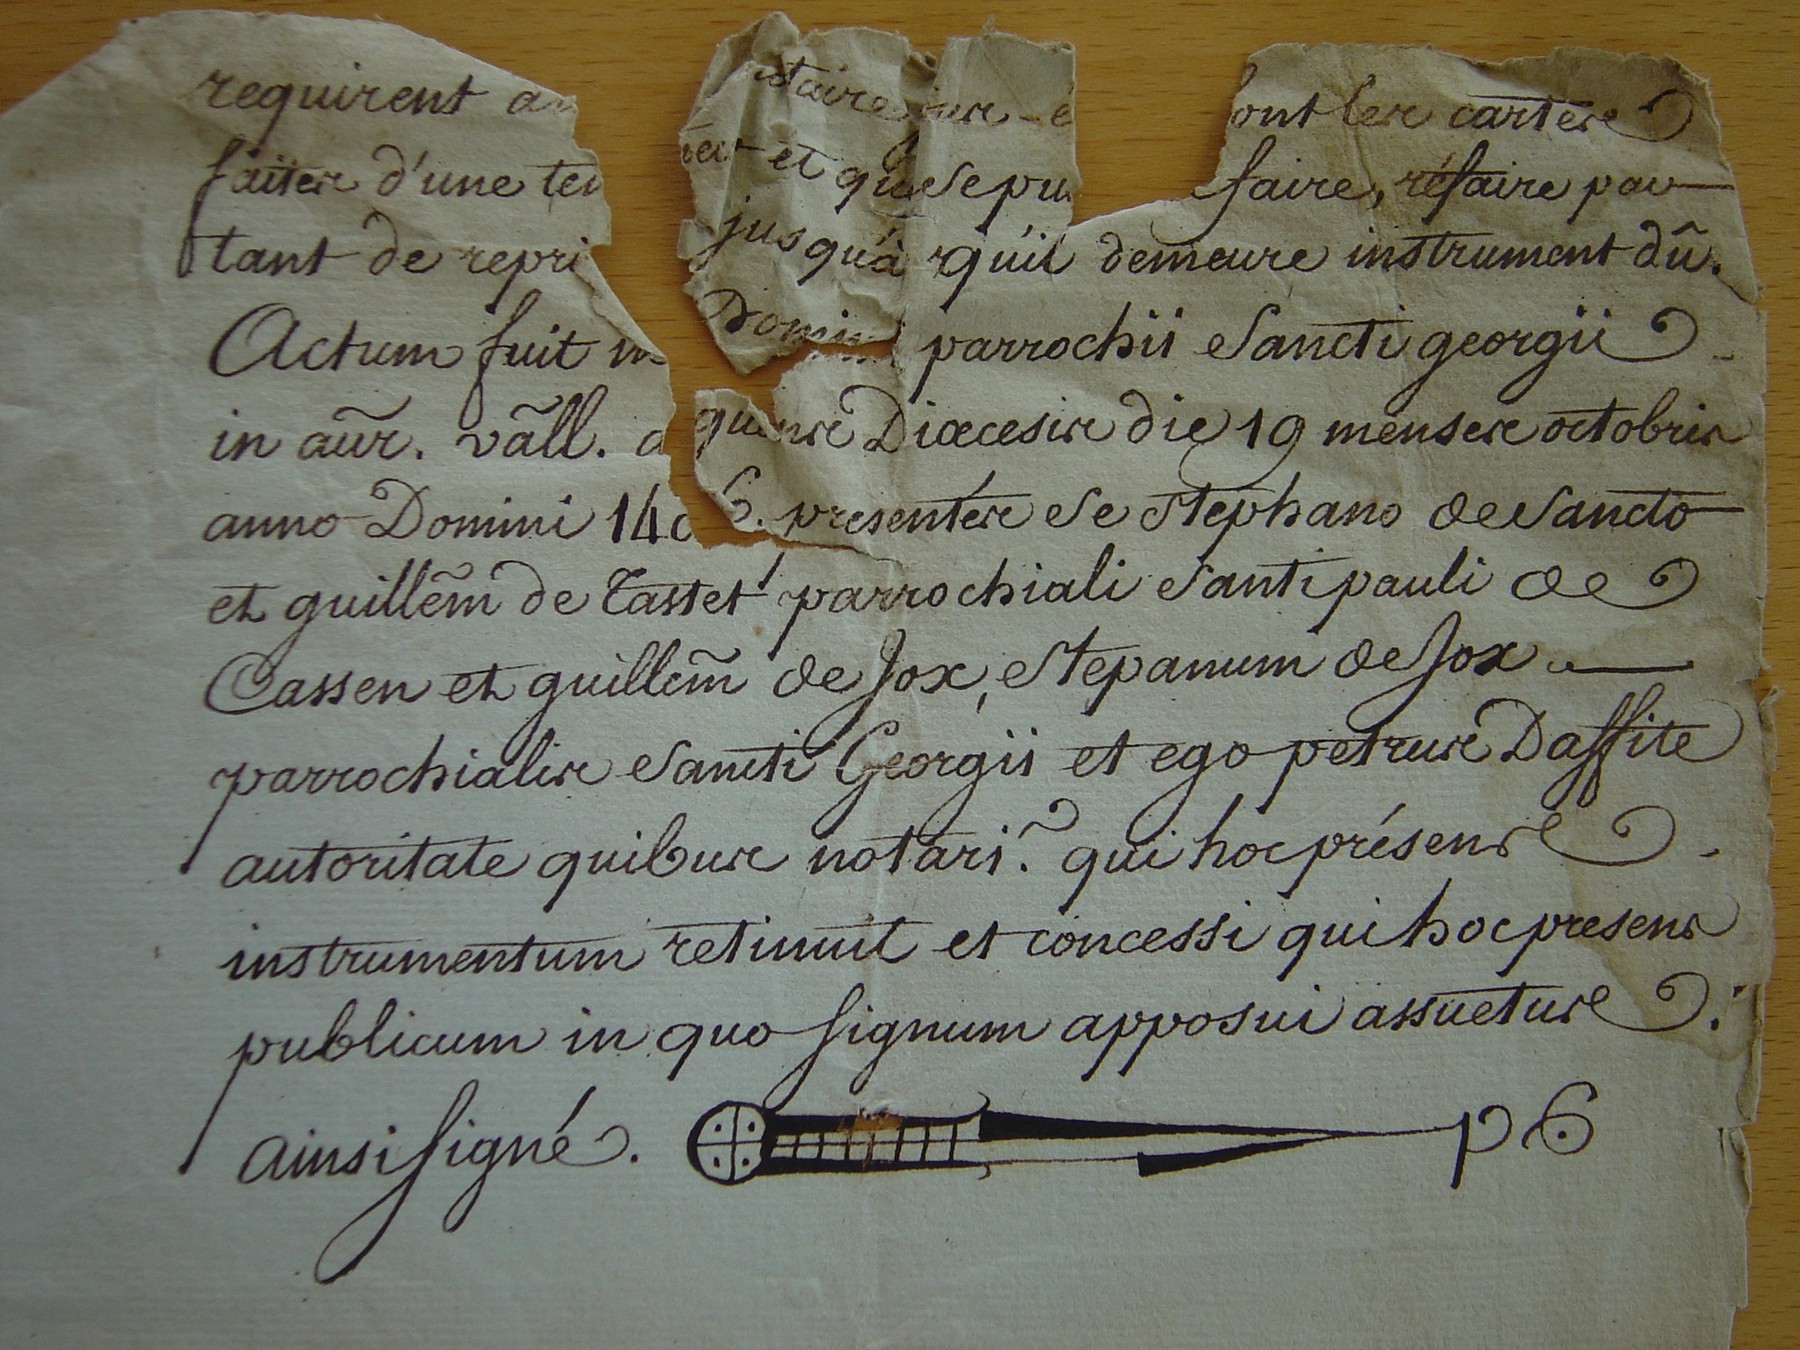 requirent a taire sur e ont les cartes
faites d'une te et que se pu faire, réfaire pau
tant de repri jusqu'à qu'il demeure instrument dû.
Actum fuit in Domini parrochii Sancti georgii
in aur̃. vãll. a quens Diœcesis die 19 menses octobris
anno Domini 14 6. presentés de Stephano de Sancto
et guillem̃ de Tastet parrochiali Santi pauli de
Cassen et guillem̃ de Jox, Stepanum de Jox
parrochialis Sancti Georgii et ego petrus Daffite
autoritate quibus notari. qui hoc présens
instrumentum retinuit et concessi qui hoc presens
publicum in quo signum apposui assuetus.
ainsi signé. p 6